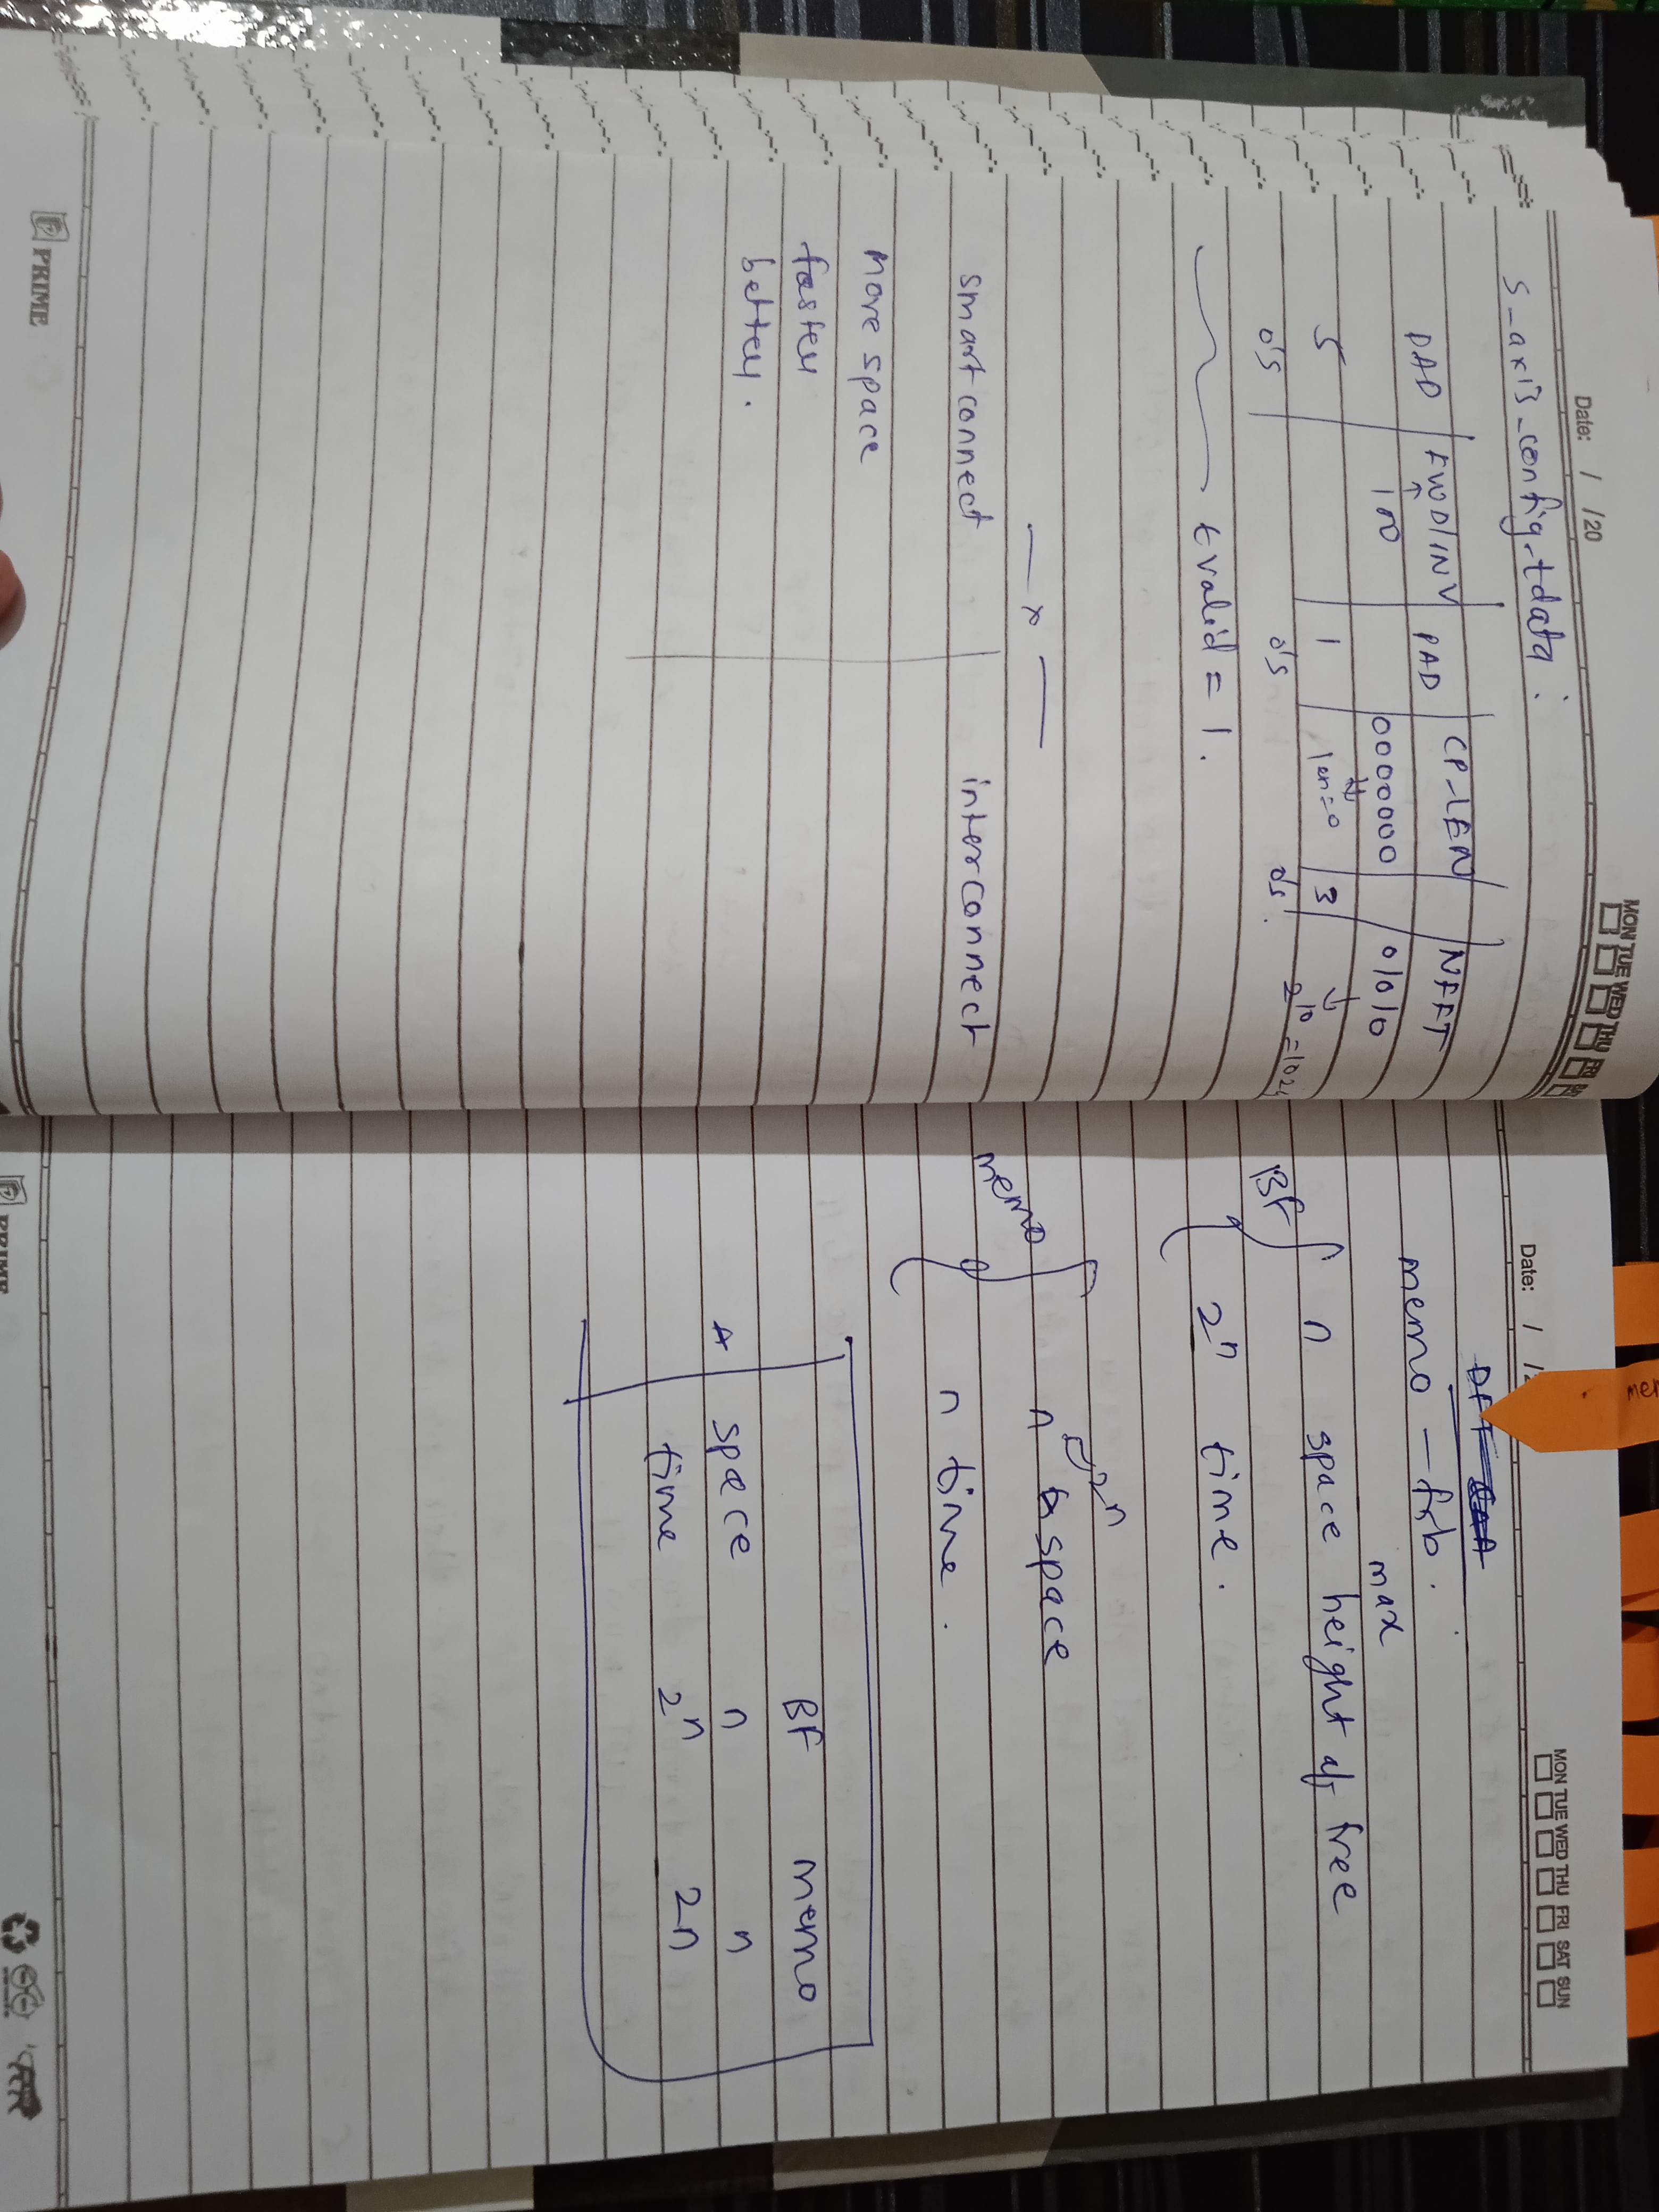 Date: / /20
MON TUE WED THU FRI
s_axis_config_tdata :
PAD FWD/INV PAD CP_LEN NFFT
1 0 0000000 01010
5 1 len=0 3
0's 0's 0's . 2^10 = 1024
tvalid = 1 .
— x —
smartconnect interconnect
more space
faster
better .
PRIME
Date: /
MON TUE WED THU FRI SAT SUN
mem
memo — fib .
max
BF n space height of tree
2^n time .
2^n
memo n space
n time .
BF memo
* space n n
time 2^n 2n
PRIME